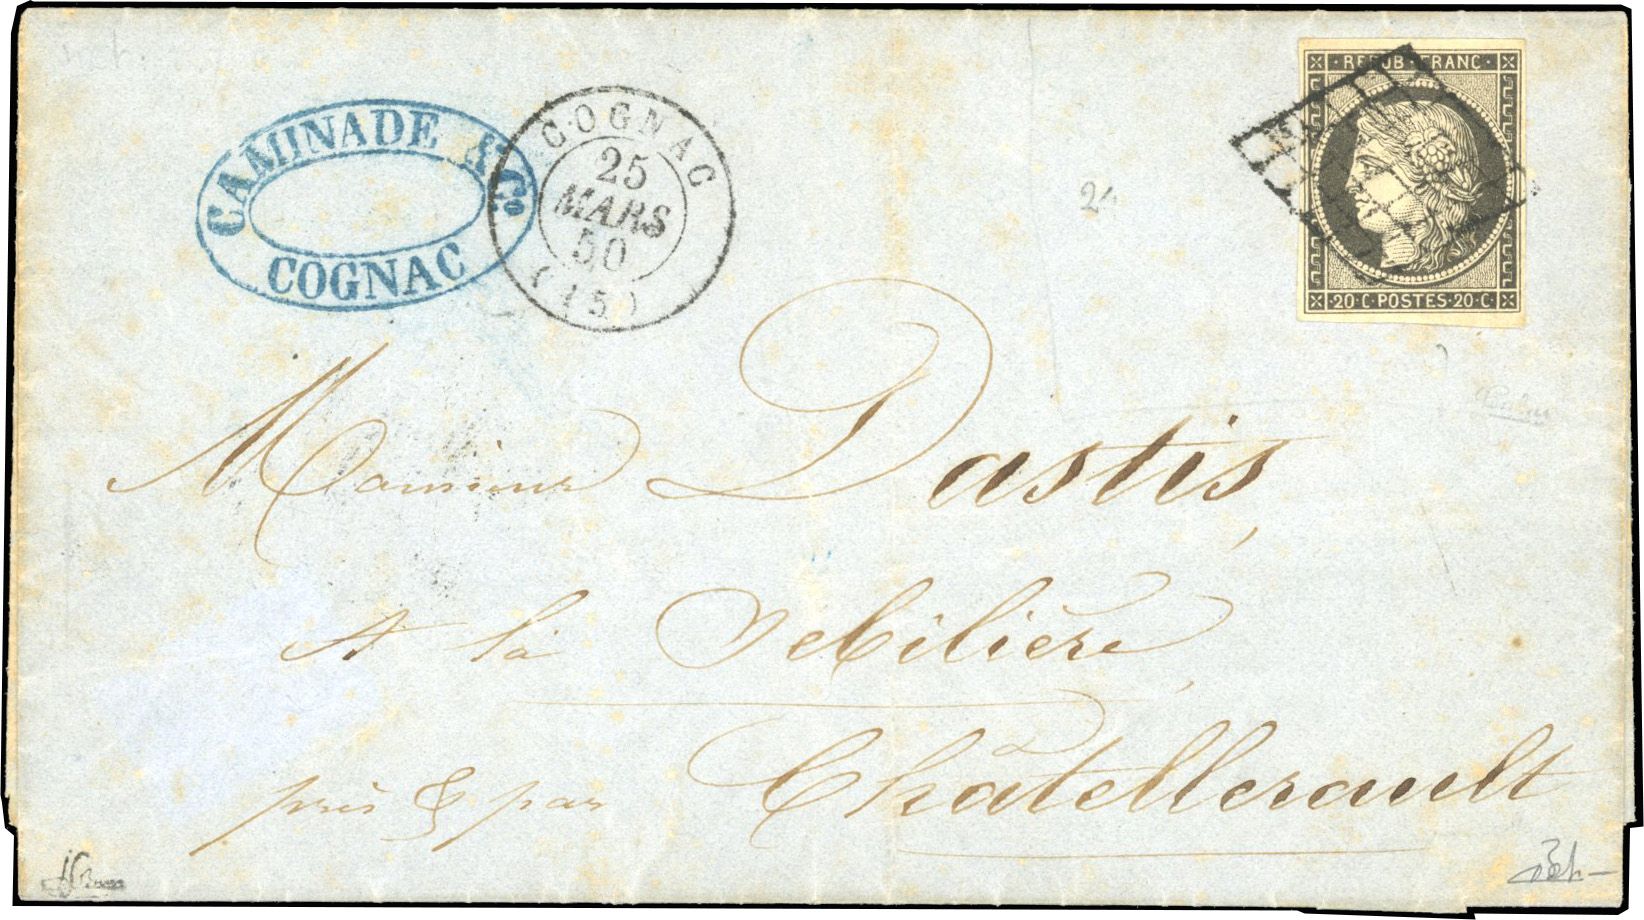 CAMINADE & Co.
COGNAC
COGNAC
25
MARS
50
(15)
REPUB·FRANC·
·20·C·POSTES·20·C·
24
Monsieur Dastis,
A la Sebilière,
près & par Châtellerault